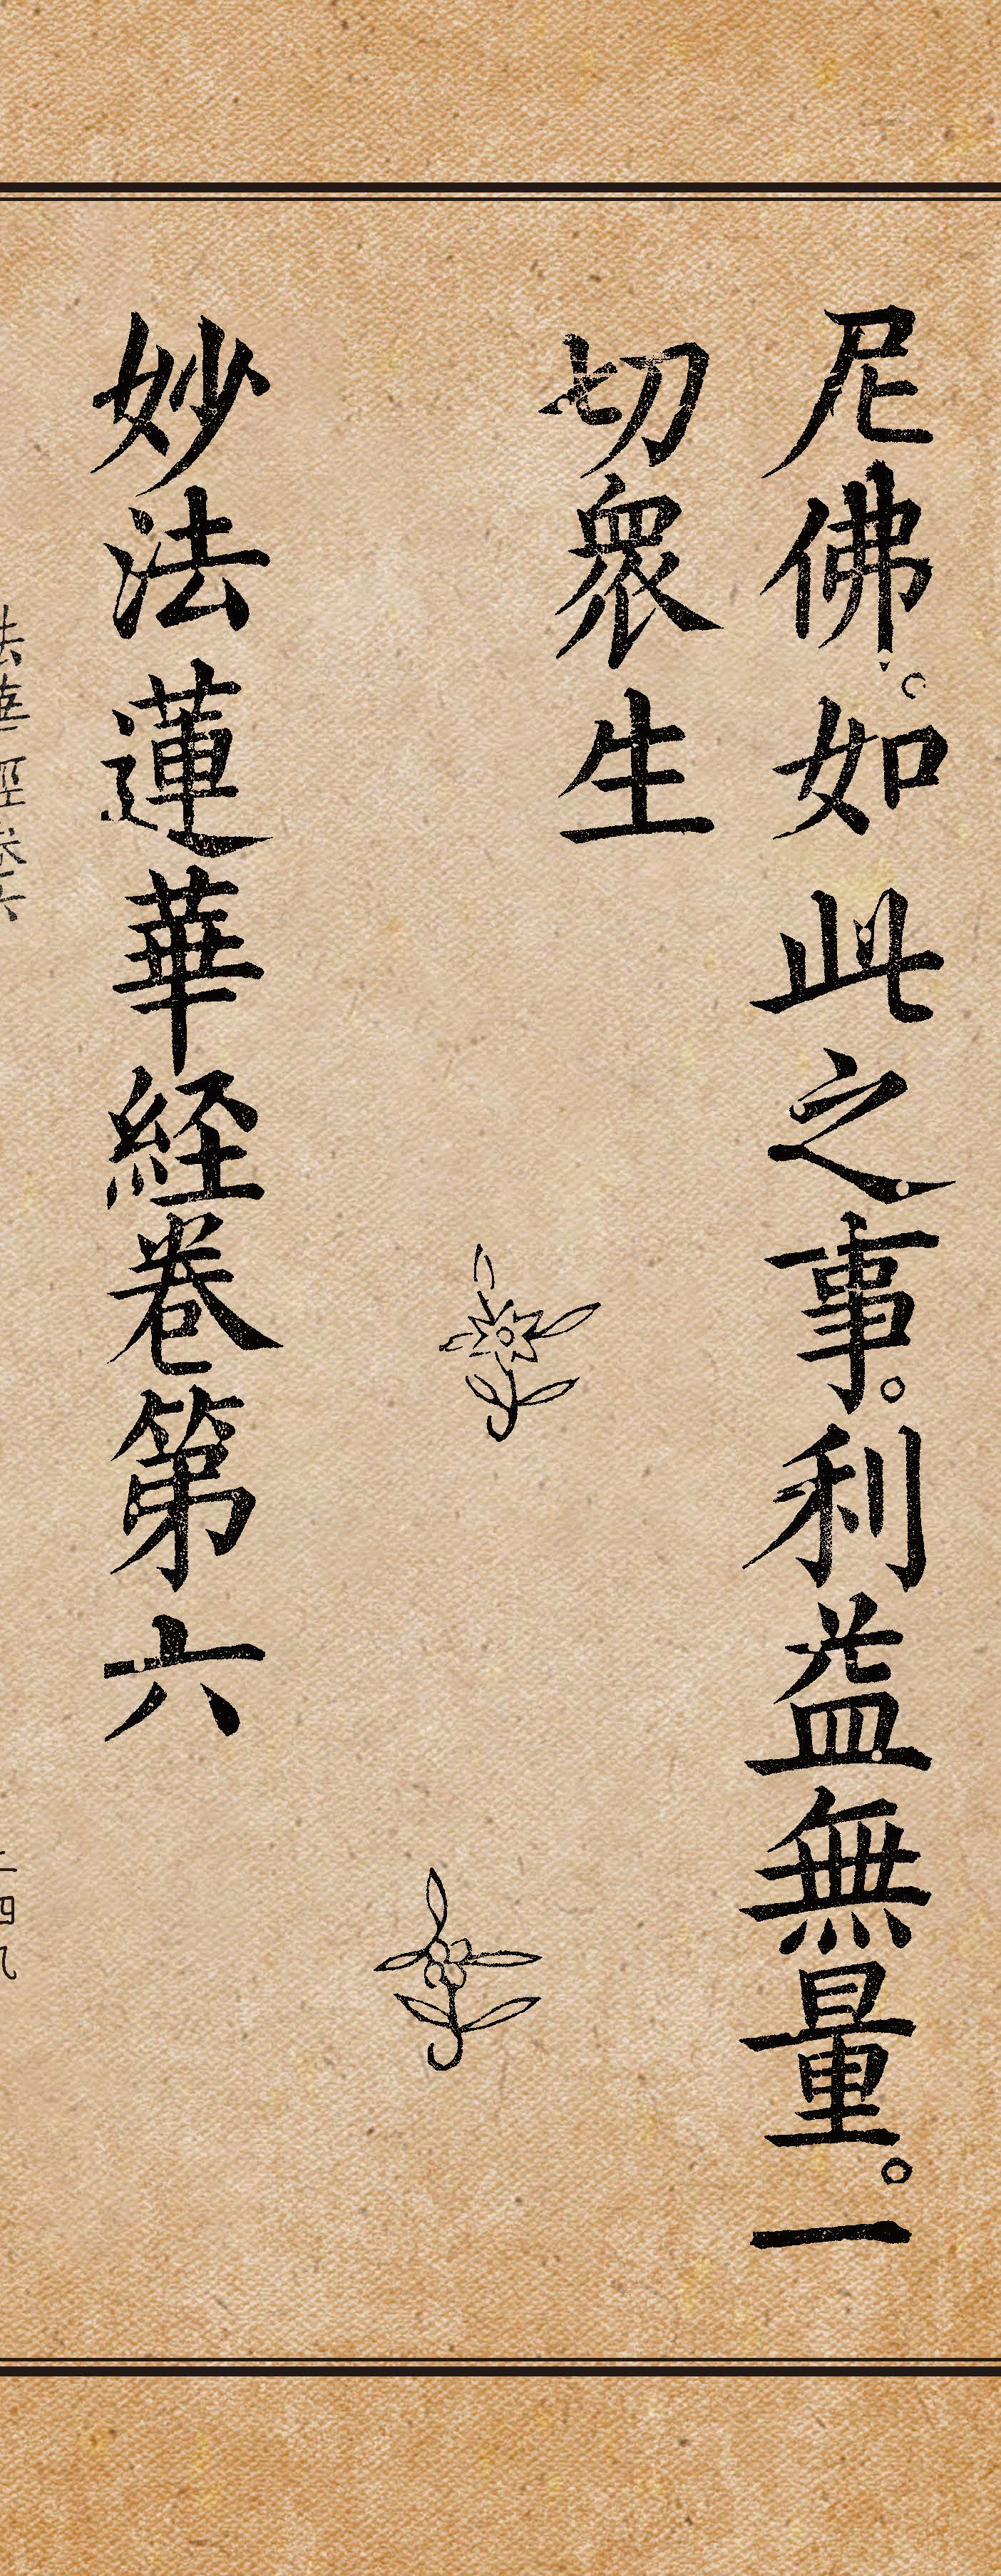 尼佛。如此之事。利益無量。一
切衆生
妙法蓮華経卷第六
法華経卷六